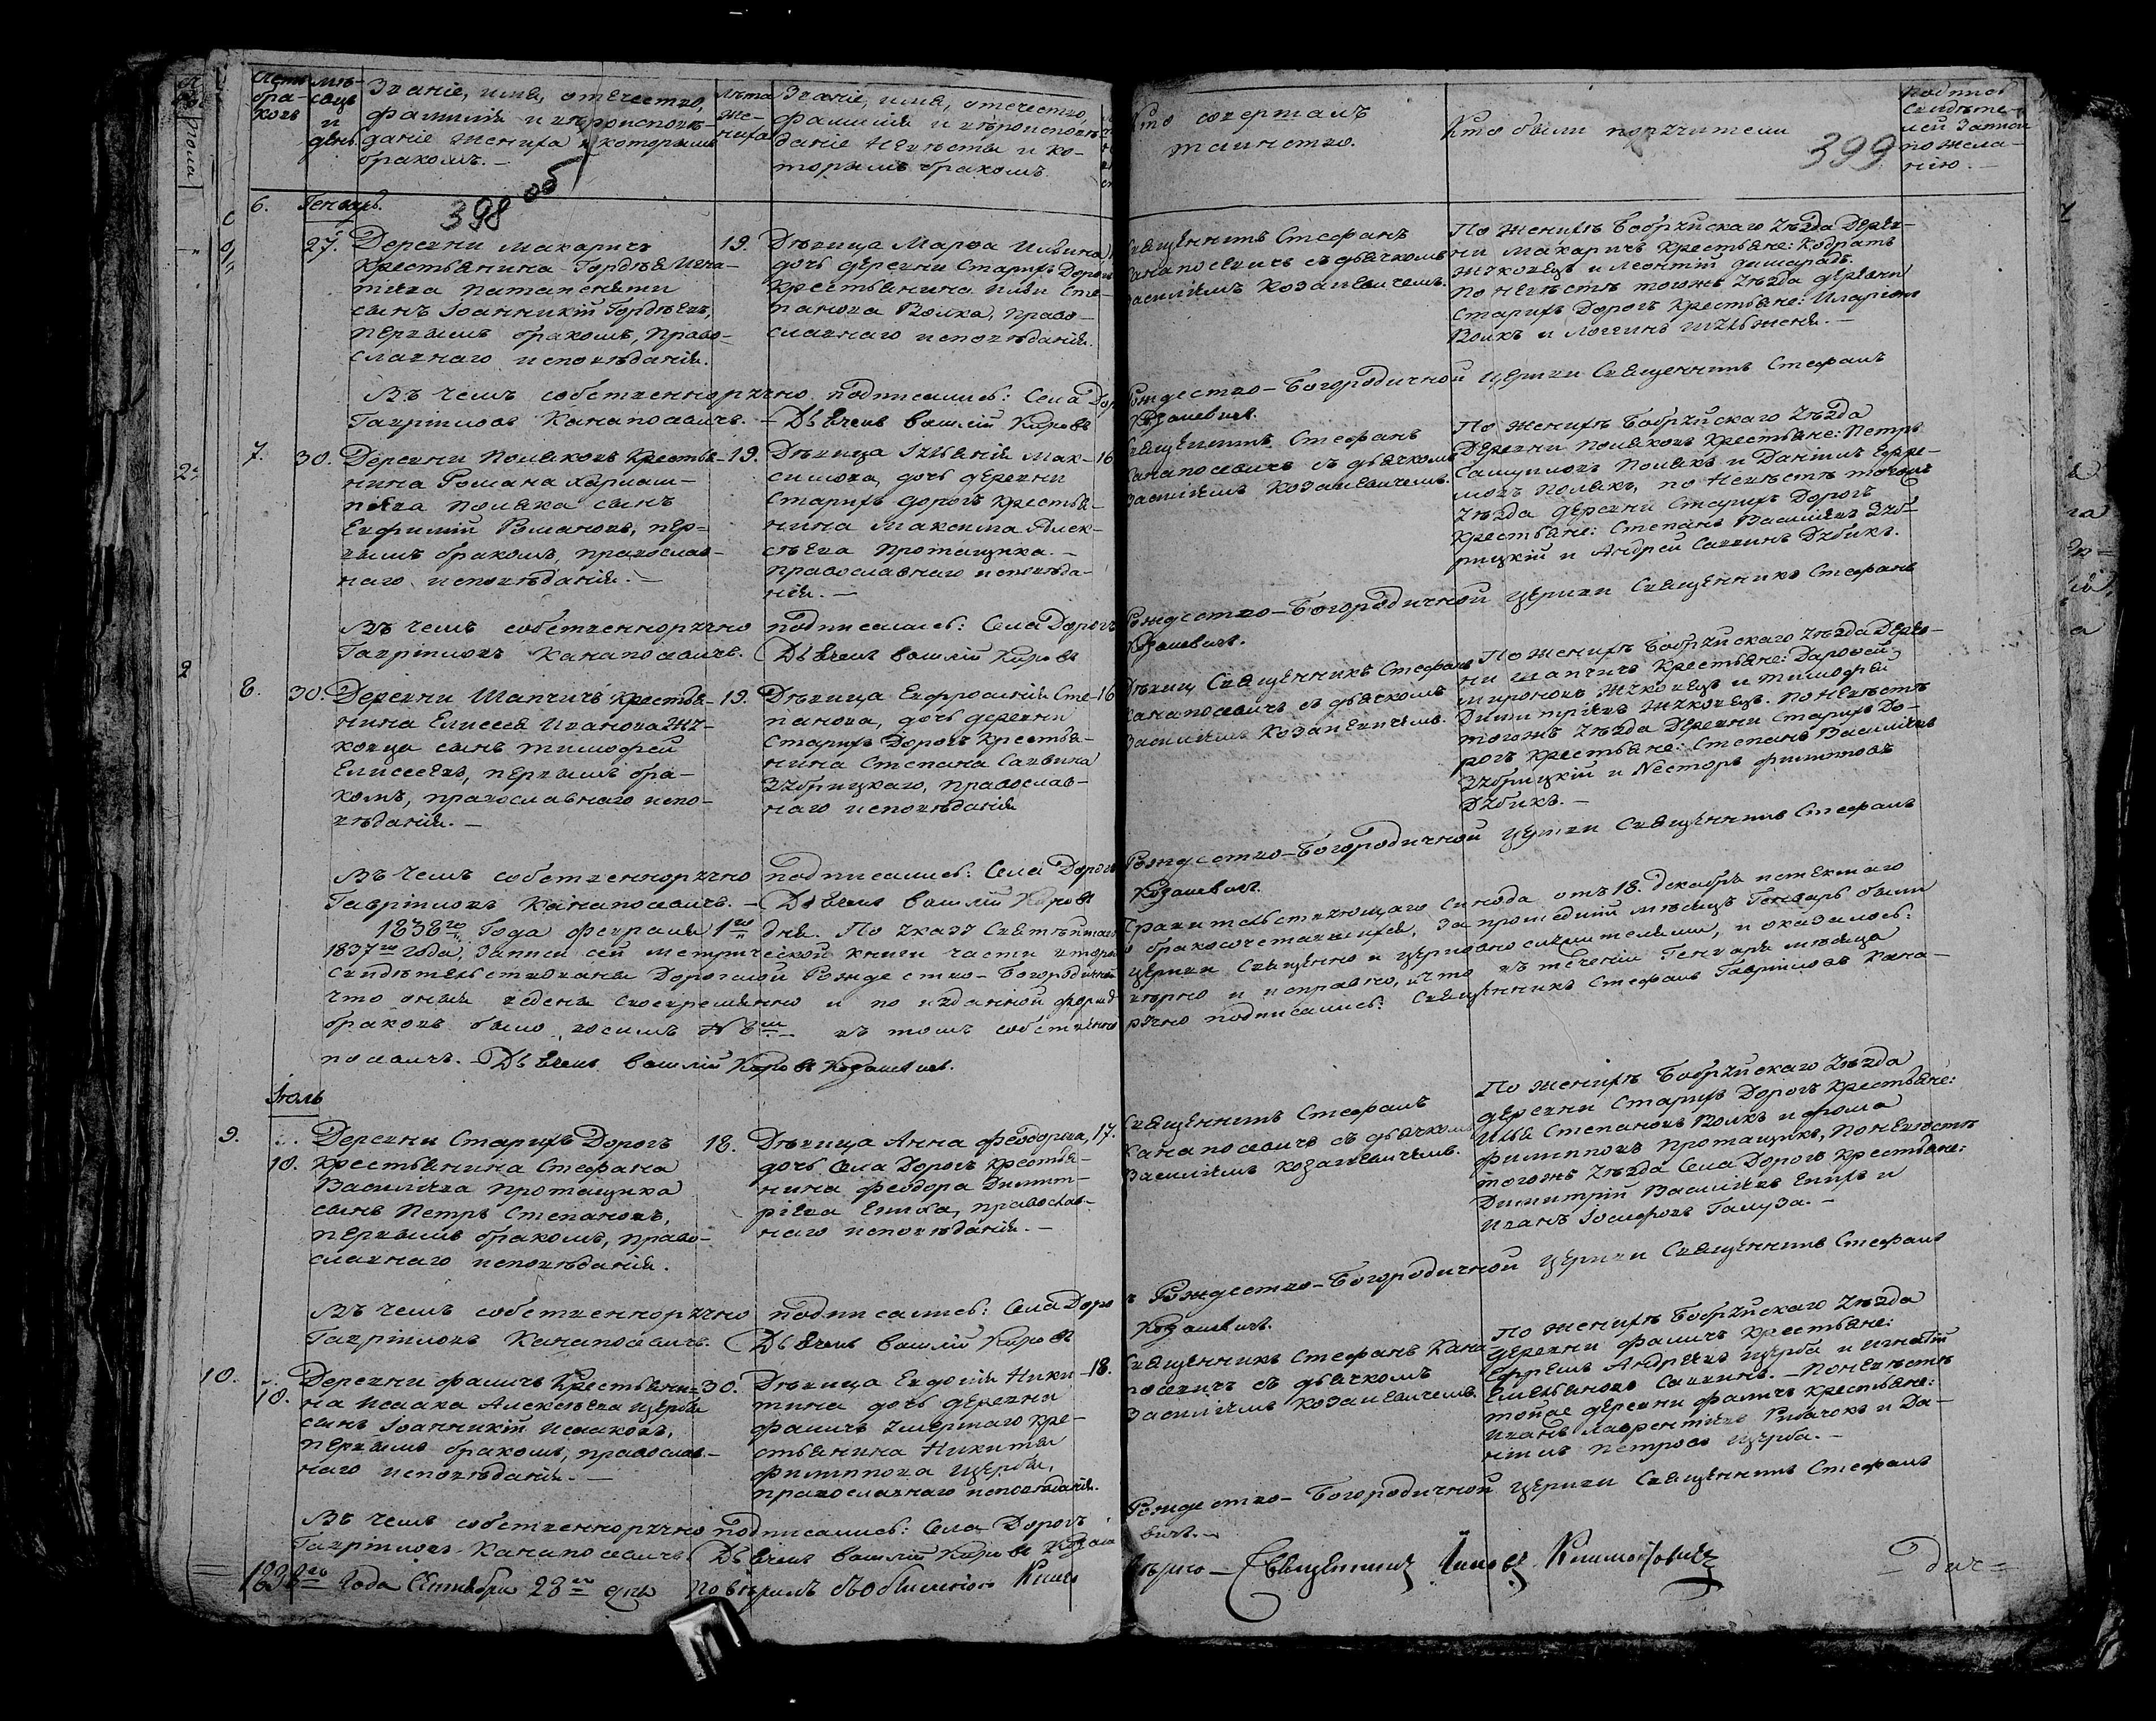 Счетъ браковъ
Мѣсяцъ и день
Званіе, имя, отчество,
фамилія и вѣроисповѣ-
даніе жениха и которымъ
бракомъ. —
Лѣта жениха
Званіе, имя, отечество,
фамилія и вѣроисповѣ-
даніе невѣсты и ко-
торымъ бракомъ
Кто совершалъ
таинство.
Кто были поручители
399
Подпись
свидѣте-
лей записи
по жела-
нію. —
398 об
6. Генварь.
27. Деревни Макаричъ
крестьянина Гордѣя Игна-
тьева
сынъ Іоанникій Гордѣевъ,
первымъ бракомъ, право-
славнаго исповѣданія.
19.
Дѣвица Марѳа Ильина
дочь деревни Старихъ Дорогъ
крестьянина Ильи Сте-
панова Волка, право-
славнаго исповѣданія.
Священникъ Стефанъ
Канапосевичъ съ дьячкомъ
Василіемъ Козакевичемъ.
По женихѣ Бобруйскаго уѣзда дерев-
ни Макаричъ крестьяне: Кодратъ
Жуковецъ и Леонтій
По невѣстѣ тогожъ уѣзда деревни
Старихъ Дорогъ крестьяне: Иларіонъ
Волкъ и Логгинъ
Въ чемъ собственноручно подписались: Села Дорогъ Рождество-Богородичной церкви Священникъ Стефанъ
Гавріиловъ Канапосевичъ. — Дьячекъ Василій Карповъ Козакевичъ.
7. 30. Деревни Поляковъ крестья-
нина Романа
Поляка сынъ
Евфимій Романовъ, пер-
вымъ бракомъ, православ-
наго исповѣданія. —
19.
Дѣвица Іуліанія Мак-
симова, дочь деревни
Старихъ Дорогъ крестья-
нина Максима Алек-
сѣева Протащика. —
православнаго исповѣда-
нія. —
16
Священникъ Стефанъ
Канапосевичъ съ дьячкомъ
Василіемъ Козакевичемъ.
По женихѣ Бобруйскаго уѣзда
Деревни Поляковъ крестьяне: Петръ
Самуиловъ Полякъ и Даніилъ Ефре-
мовъ Полякъ, по невѣстѣ тогожъ
уѣзда деревни Старихъ Дорогъ
крестьяне: Степанъ Василіевъ Зуб-
рицкій и Андрей Саввинъ Дубикъ.
Въ чемъ собственноручно подписались: Села Дорогъ Рождество-Богородичной церкви Священникъ Стефанъ
Гавріиловъ Канапосевичъ. Дьячекъ Василій Карповъ Козакевичъ.
8. 30. Деревни Шапчичъ крестья-
нина Елисея Иванова Жу-
ковца сынъ Тимофей
Елисеевъ, первымъ бра-
комъ, православнаго испо-
вѣданія. —
19.
Дѣвица Евфросинія Сте-
панова, дочь деревни
Старихъ Дорогъ крестья-
нина Степана Саввина
Зубрицкаго, православ-
наго исповѣданія
16
Священникъ Стефанъ
Канапосевичъ съ дьячкомъ
Василіемъ Козакевичемъ.
По женихѣ Бобруйскаго уѣзда дерев-
ни Шапчичъ крестьяне: Дорофей
Мироновъ Жуковецъ и Тимофей
Димитріевъ Жуковецъ. По невѣстѣ
тогожъ уѣзда деревни Старихъ До-
рогъ крестьяне: Степанъ Василіевъ
Зубрицкій и Несторъ Филиповъ
Дубикъ. —
Въ чемъ собственноручно подписались: Села Дорогъ Рождество-Богородичной церкви Священникъ Стефанъ
Гавріиловъ Канапосевичъ. — Дьячекъ Василій Карповъ Козакевичъ.
1838го года февраля 1го дня. По указу Святѣйшаго Правительствующаго Синода отъ 18. декабря истекшаго
1837го года, записи сей метрической книги части второй о бракосочетавшихся, за прошедшій мѣсяцъ Генварь были
свидѣтельствованы Дорогской Рождество-Богородичной церкви священно и церковно служителями, и оказалось:
что оныя ведены своевременно и по изданной формѣ вѣрно и исправно, и что въ теченіи Генваря мѣсяца
браковъ было восемь № 8й въ томъ собственноручно подписались: Священникъ Стефанъ Гавріиловъ Кана-
посевичъ. — Дьячекъ Василій Карповъ Козакевичъ.
Іюль
9. 10. Деревни Старихъ Дорогъ
крестьянина Стефана
Василіева Протащика
сынъ Петръ Степановъ,
первымъ бракомъ, право-
славнаго исповѣданія.
18.
Дѣвица Анна Феодорова,
дочь Села Дорогъ крестья-
нина Феодора Димит-
ріева Епиха, православ-
наго исповѣданія. —
17.
Священникъ Стефанъ
Канапосевичъ съ дьячкомъ
Василіемъ Козакевичемъ.
По женихѣ Бобруйскаго уѣзда
деревни Старихъ Дорогъ крестьяне:
Илья Степановъ Волкъ и Фома
Филипповъ Протащикъ, по невѣстѣ
тогожъ уѣзда Села Дорогъ крестьяне:
Димитрій Василіевъ Епихъ и
Иванъ Іосифовъ Галуза. —
Въ чемъ собственноручно подписались: Села Дорогъ Рождество-Богородичной церкви Священникъ Стефанъ
Гавріиловъ Канапосевичъ. Дьячекъ Василій Карповъ Козакевичъ.
10. 10. Деревни Фаличъ крестьяни-
на Исаака Алексѣева Щербы
сынъ Іоанникій Исааковъ,
первымъ бракомъ, православ-
наго исповѣданія. —
30.
Дѣвица Евдокія Ники-
тина дочь деревни
Фаличъ умершаго кре-
стьянина Никиты
Филиппова Щербы,
православнаго исповѣданія.
18.
Священникъ Стефанъ Кана-
посевичъ съ дьячкомъ
Василіемъ Козакевичемъ.
По женихѣ Бобруйскаго уѣзда
деревни Фаличъ крестьяне:
Ефремъ Андреевъ Щерба и Игнатій
Емельяновъ Саввинъ. — По невѣстѣ
тойже деревни Фаличъ крестьяне:
Иванъ Лаврентіевъ Рибачокъ и Да-
ніилъ Петровъ Щерба. —
Въ чемъ собственноручно подписались: Села Дорогъ Рождество-Богородичной церкви Священникъ Стефанъ
Гавріиловъ Канапосевичъ. Дьячекъ Василій Карповъ Козакевичъ. —
1838го года Сентября 23го дня Повѣрилъ вѣрно — Священникъ